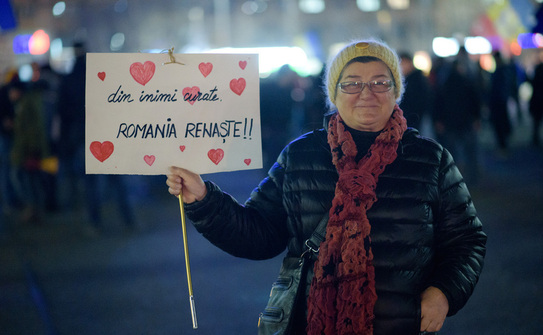 din inimi curate,
ROMANIA RENAȘTE!!